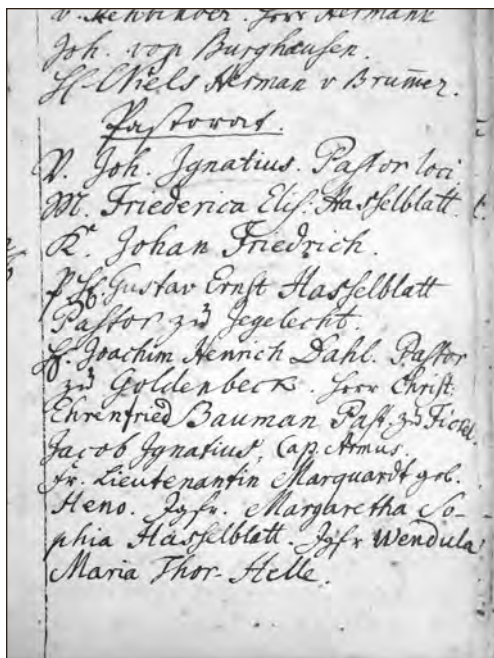 v. Rehbinder. Herr Hermann
Joh. von Burghausen.
H. Niels Herman v Brum̄er.
Pastorat.
V. Joh. Ignatius. Pastor loci
M. Friederica Elis. Hasselblatt.
K. Johan Friedrich.
P. H. Gustav Ernst Hasselblatt
Pastor zu Jegelecht.
H. Joachim Henrich Dahl. Pastor
zu Goldenbeck. Herr Christ:
Ehrenfried Bauman Past. zu Fickel
Jacob Ignatius, Cap. Armus.
Fr. Lieutenantin Marquardt geb.
Heno. Jgfr. Margaretha So-
phia Hasselblatt. Jgfr Wendula
Maria Thor-Helle.